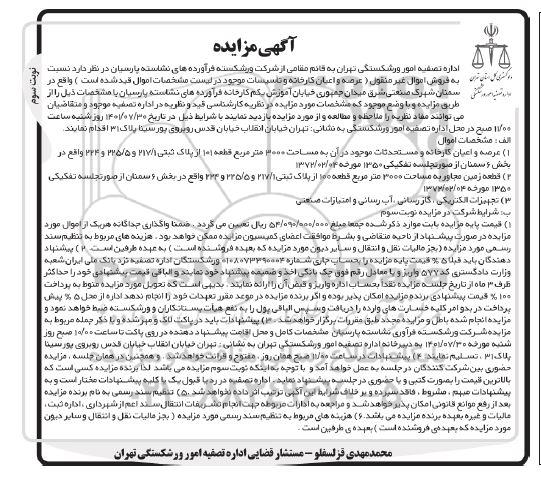 آگهی مزایده
نوبت سوم
اداره تصفیه امور ورشکستگی تهران به قائم مقامی از شرکت ورشکسته فرآورده های نشاسته پارسیان در نظر دارد نسبت
به فروش اموال غیر منقول ( عرصه و اعیان کارخانه و تاسیسات موجود در لیست مشخصات اموال قید شده است ) واقع در
سمنان شهرک صنعتی شرق میدان جمهوری خیابان آموزش یکم کارخانه فرآورده های نشاسته پارسیان با مشخصات ذیل را از
طریق مزایده و با وضع موجود که مشخصات مورد مزایده در نظریه کارشناسی قید و نظریه در اداره تصفیه موجود و متقاضیان
می توانند مفاد نظریه را ملاحظه و مطالعه و از مورد مزایده بازدید نمایند با شرایط ذیل در تاریخ ۱۴۰۱/۰۷/۳۰ روز شنبه ساعت
۱۱/۰۰ صبح در محل اداره تصفیه امور ورشکستگی به نشانی : تهران خیابان انقلاب خیابان قدس روبروی پورسینا پلاک ۳۱ اقدام نمایند.
الف : مشخصات اموال
۱) عرصه و اعیان کارخانه و مستحدثات موجود در آن به مساحت ۳۰۰۰ متر مربع قطعه ۱۰۱ از پلاک ثبتی ۲۱۷/۱ و ۲۲۵/۵ و ۲۲۴ واقع در
بخش ۶ سمنان از صورتجلسه تفکیکی ۱۳۵۰ مورخه ۱۳۷۲/۰۲/۰۴
۲) قطعه زمین مجاور به مساحت ۳۰۰۰ متر مربع قطعه ۱۰۰ از پلاک ثبتی ۲۱۷/۱ و ۲۲۵/۵ و ۲۲۴ واقع در بخش ۶ سمنان از صورتجلسه تفکیکی
۱۳۵۰ مورخه ۱۳۷۲/۰۲/۰۴
۳) تجهیزات الکتریکی ، گازرسانی ، آب رسانی و امتیازات صنعتی
ب: شرایط شرکت در مزایده نوبت سوم
۱) قیمت پایه مزایده بابت موارد ذکر شده جمعا مبلغ ۵۴/۰۹۰/۰۰۰/۰۰۰ ریال تعیین می گردد . ضمنا واگذاری جداگانه هریک از اموال مورد
مزایده در صورت پیشنهاد از ناحیه متقاضی و بشرط موافقت اعضای کمیسیون مزایده ممکن خواهد بود . هزینه های مربوط به تنظیم سند
رسمی مورد مزایده (بجز مالیات نقل و انتقال و سایر دیون مورد که بعهده فروشنده است ) به عهده طرفین است. ۲ ) پیشنهاد
دهندگان باید قبلا ۵ % قیمت پایه مزایده را بحساب جاری شماره ورشکستگان اداره تصفیه نزد بانک ملی ایران شعبه
وزارت دادگستری کد ۵۷۷ واریز و یا معادل رقم فوق چک بانکی اخذ و ضمیمه پیشنهاد خود نمایند و الباقی قیمت پیشنهادی خود را حداکثر
ظرف ۳ ماه از تاریخ جلسه مزایده نقداً بحساب اداره واریز و قبض آن را ارائه نمایند . بدیهی است که تحویل مورد مزایده منوط به پرداخت
۱۰۰ % قیمت پیشنهادی برنده مزایده امکان پذیر بوده و اگر برنده مزایده در موعد مقرر تعهدات خود را انجام ندهد اداره از محل ۵ % پیش
پرداخت در بدو امر کلیه خسارت های وارده را دریافت و سپس الباقی پول را به نفع هیأت بستانکاران و ورشکسته ضبط خواهد نمود و
مزایده انجام شده باطل و مزایده مجدد طبق مقررات برگزار خواهد شد . ۳) پیشنهادات باید در پاکت لاک و مهر شده و با ذکر جمله مربوط به
مزایده شرکت ورشکسته فرآوری نشاسته پارسیان مشخصات کامل و محل اقامت پیشنهاد دهنده در روی پاکت تا ساعت ۱۰/۰۰ صبح روز
شنبه مورخه ۱۴۰۱/۰۷/۳۰ به دبیرخانه اداره تصفیه امور ورشکستگی تهران به نشانی : تهران خیابان انقلاب خیابان قدس روبروی پورسینا
پلاک ۳۱ . تسلیم نمایند. ۴) پیشنهادات در ساعت ۱۱/۰۰ صبح همان روز . مفتوح و قرائت خواهد شد . و همچنین در همان جلسه ، مزایده
حضوری بین شرکت کنندگان در جلسه به عمل خواهد آمد و با توجه به اینکه نوبت سوم مزایده می باشد لذا برنده مزایده کسی است که
بالاترین قیمت را بصورت کتبی و یا حضوری در جلسه پیشنهاد نماید . اداره تصفیه در رد یا قبول یک یا کلیه پیشنهادات مختار است و به
پیشنهادات مبهم ، مشروط ، فاقد سپرده و بر خلاف شرایط این آگهی ترتیب اثر داده نخواهد شد .۵) تنظیم سند رسمی به نام برنده مزایده
بعد از رفع موانع قانونی امکان پذیر خواهد شد و مراجعه به ادارات مربوطه جهت انجام تشریفات انتقال سند اعم از شهرداری ، اداره ثبت ،
مالیات و غیره بعهده برنده مزایده می باشد.۶) هزینه های مربوط به تنظیم سند رسمی مورد مزایده ( بجز مالیات نقل و انتقال و سایر دیون
مورد که بعهده ی فروشنده است ) بعهده ی طرفین است .
محمدمهدی قزلسفلو - مستشار قضایی اداره تصفیه امور ورشکستگی تهران